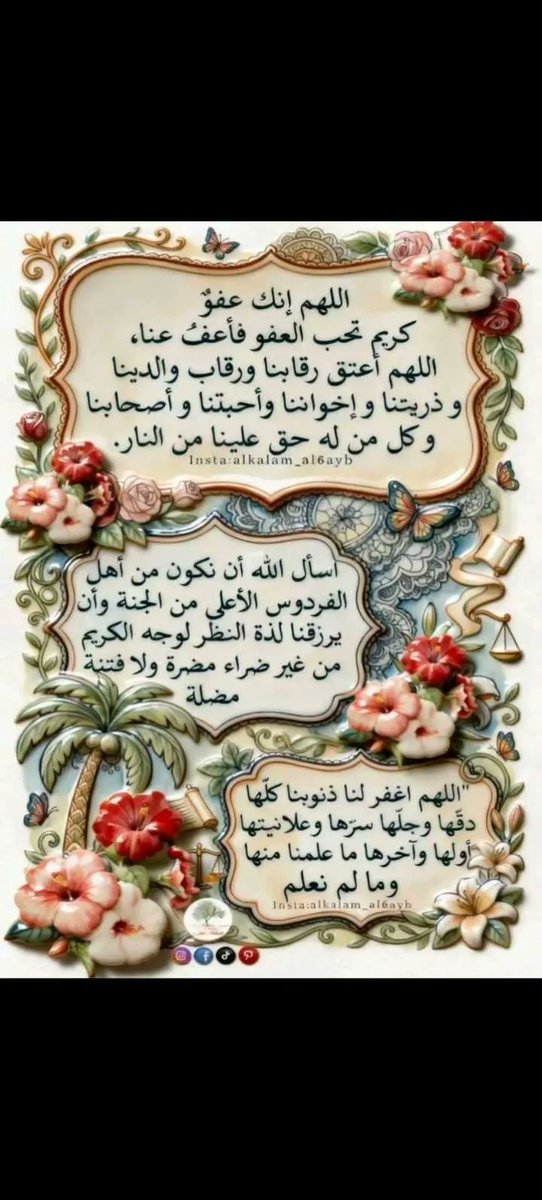 اللهم إنك عفوٌ
كريم تحب العفو فأعفُ عنا،
اللهم أعتق رقابنا ورقاب والدينا
و ذريتنا و إخواننا وأحبتنا و أصحابنا
و كل من له حق علينا من النار.
Insta:alkalam_al6ayb
أسأل الله أن نكون من أهل
الفردوس الأعلى من الجنة وأن
يرزقنا لذة النظر لوجه الكريم
من غير ضراء مضرة ولا فتنة
مضلة
"اللهم اغفر لنا ذنوبنا كلّها
دقّها وجلّها سرّها وعلانيتها
أولها وآخرها ما علمنا منها
وما لم نعلم
Insta:alkalam_al6ayb